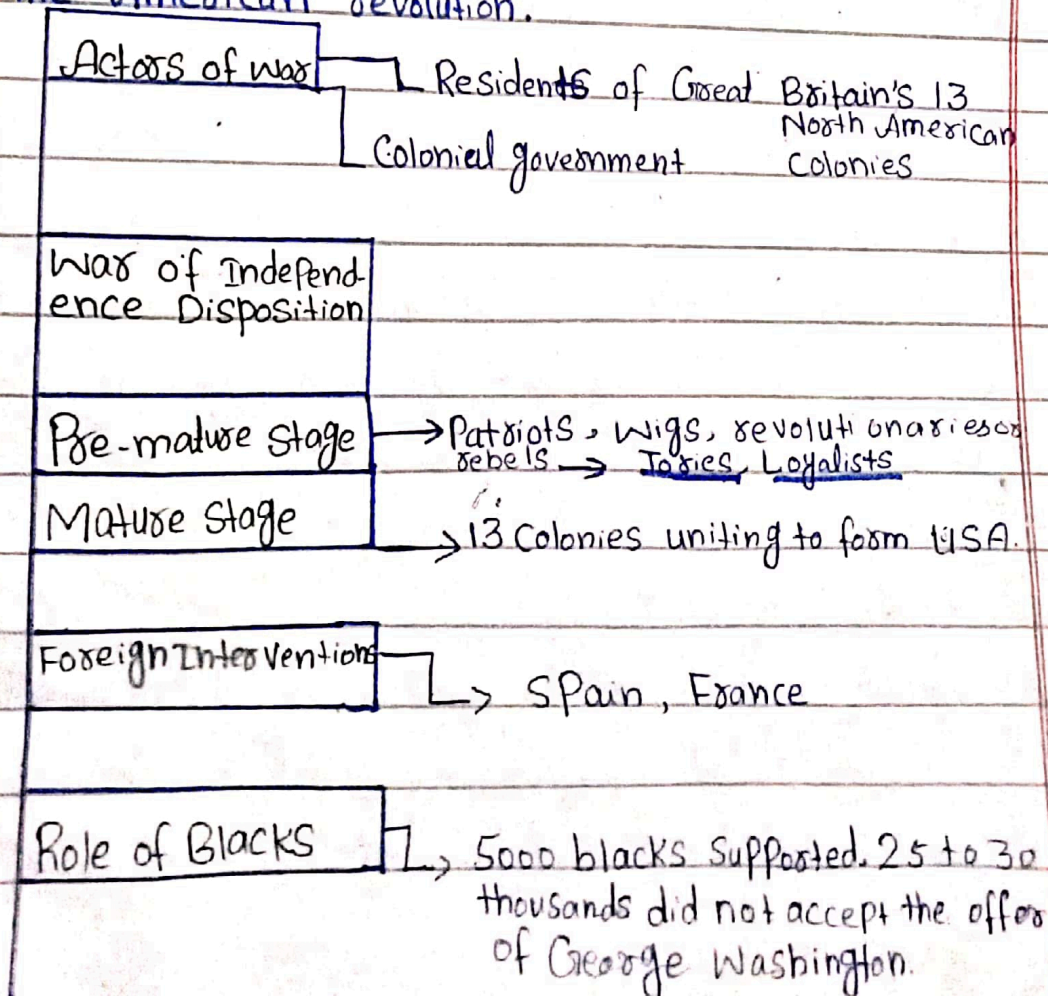 Actors of war
Residents of Great Britain's 13
North American
Colonies
Colonial government
War of Independ-
ence Disposition
Pre-mature Stage
Patriots, Wigs, revolutionaries or
rebels → Tories, Loyalists
Mature Stage
→ 13 Colonies uniting to form USA.
Foreign Interventions
→ Spain, France
Role of Blacks
→ 5000 blacks Supported. 25 to 30
thousands did not accept the offer
of George Washington.